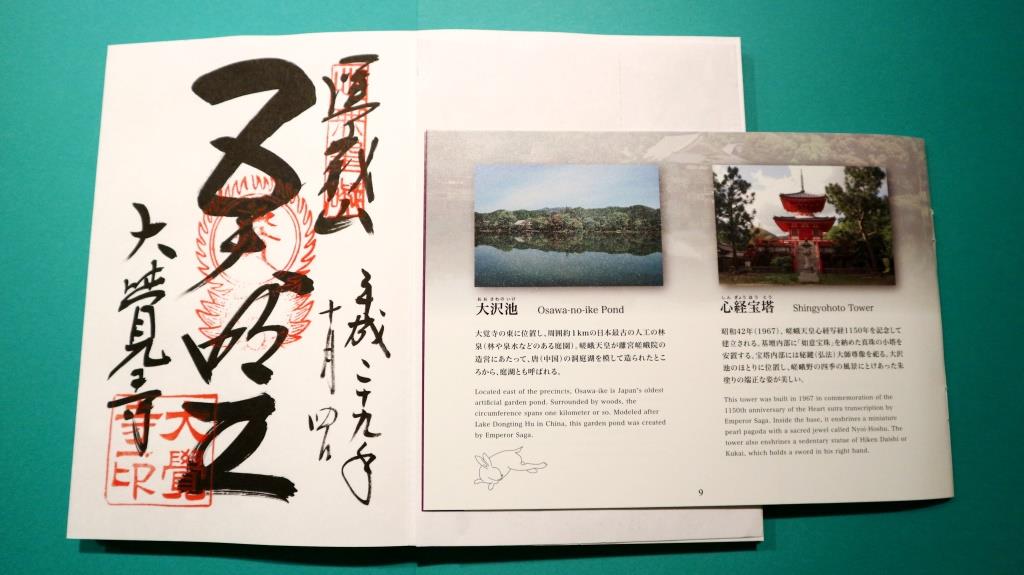 五大明王
平成二十九年
十月四日
大覺寺
大覺
寺印
おおさわのいけ
大沢池 Osawa-no-ike Pond
大覚寺の東に位置し、周囲約1kmの日本最古の人工の林
泉(林や泉水などのある庭園)。嵯峨天皇が離宮嵯峨院の
造営にあたって、唐(中国)の洞庭湖を模して造られたとこ
ろから、庭湖とも呼ばれる。
Located east of the precincts, Osawa-ike is Japan's oldest
artificial garden pond. Surrounded by woods, the
circumference spans one kilometer or so. Modeled after
Lake Dongting Hu in China, this garden pond was created
by Emperor Saga.
しんぎょうほうとう
心経宝塔 Shingyohoto Tower
昭和42年(1967)、嵯峨天皇心経写経1150年を記念して
建立される。基壇内部に「如意宝珠」を納めた真珠の小塔を
安置する。宝塔内部には秘鍵(弘法)大師尊像を祀る。大沢
池のほとりに位置し、嵯峨野の四季の風景にとけあった朱
塗りの端正な姿が美しい。
This tower was built in 1967 in commemoration of the
1150th anniversary of the Heart sutra transcription by
Emperor Saga. Inside the base, it enshrines a miniature
pearl pagoda with a sacred jewel called Nyoi-Hoshu. The
tower also enshrines a sedentary statue of Hiken Daishi or
Kukai, which holds a sword in his right hand.
9